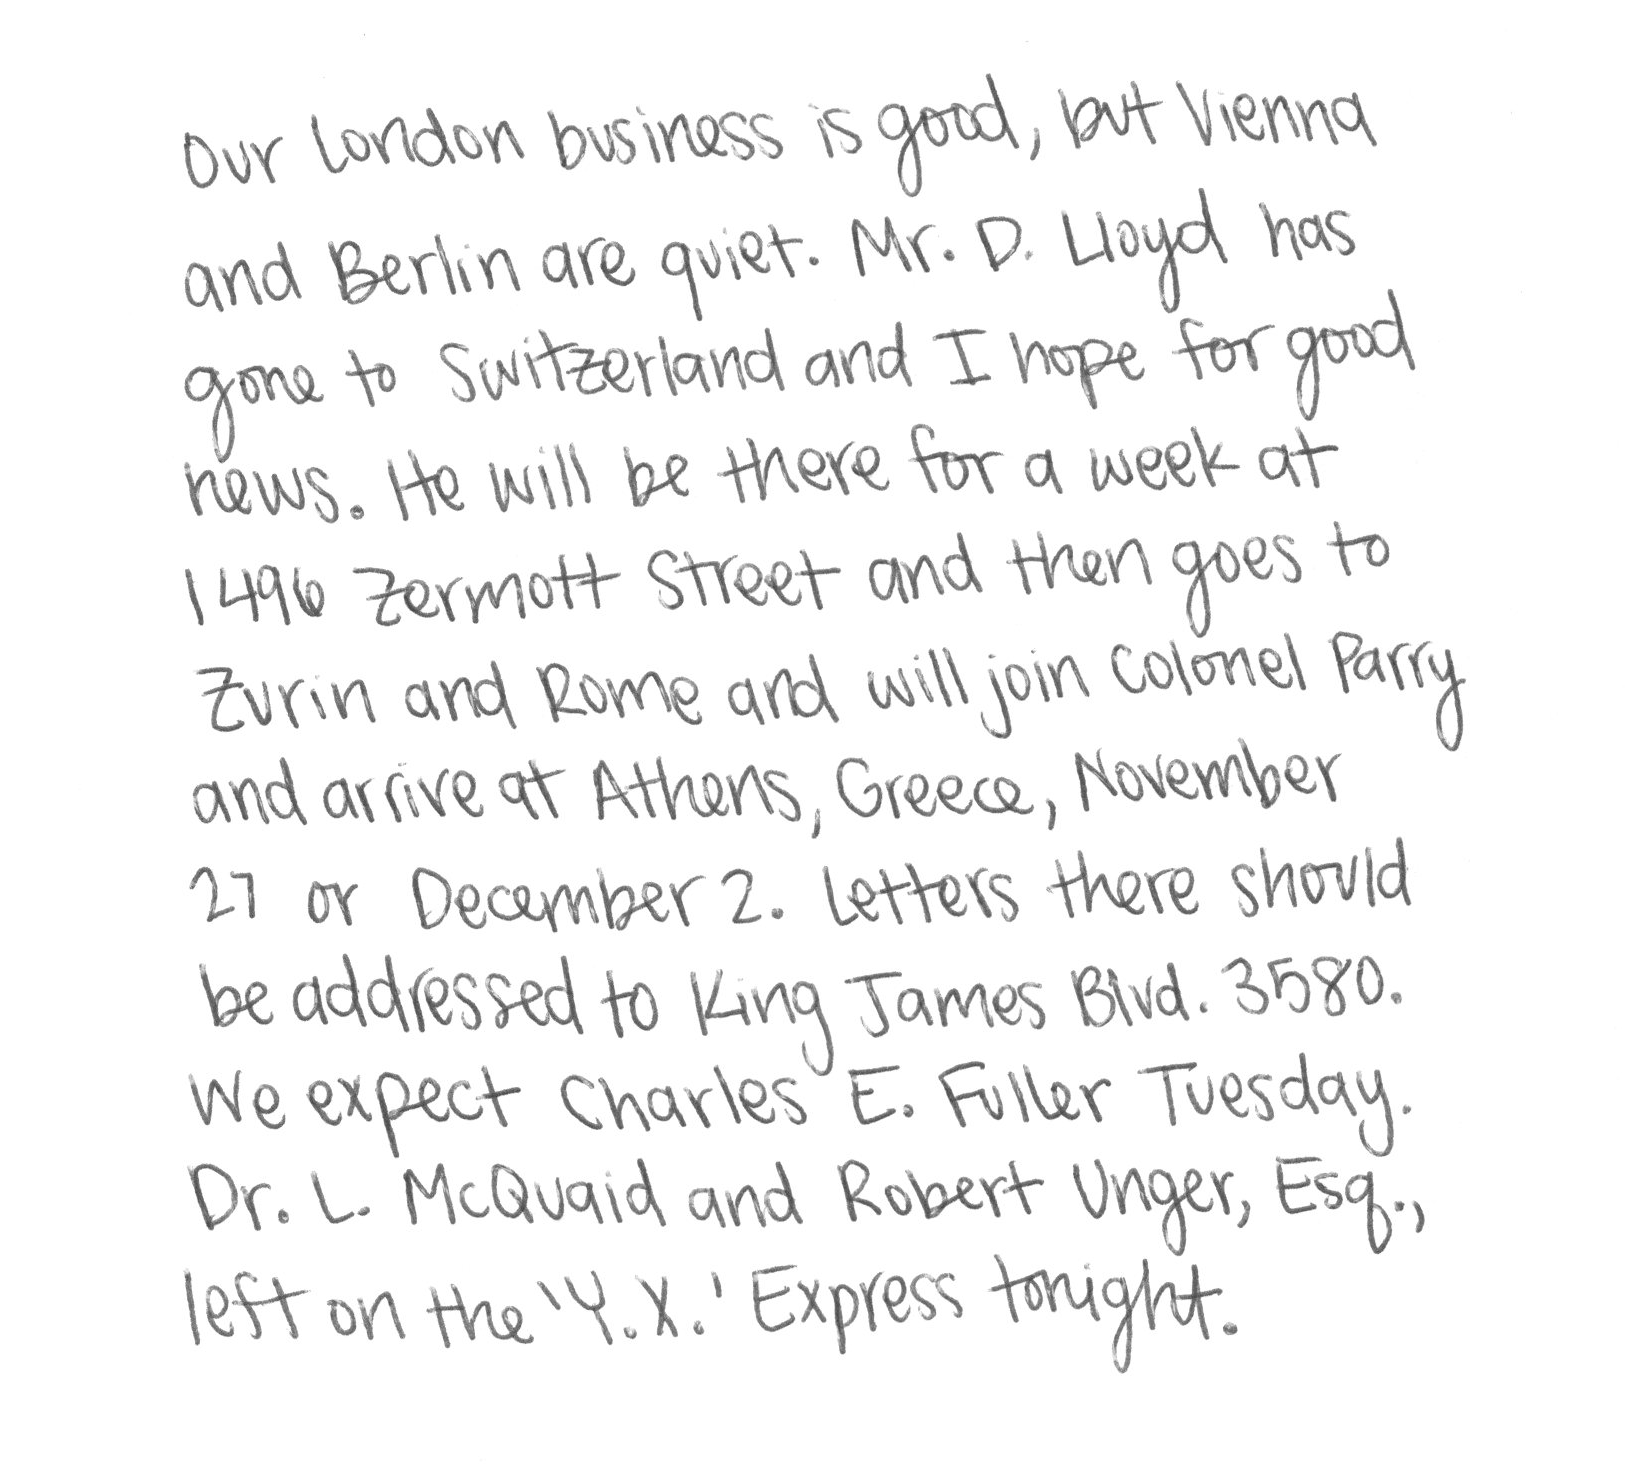 Our London business is good, but Vienna
and Berlin are quiet. Mr. D. Lloyd has
gone to Switzerland and I hope for good
news. He will be there for a week at
1496 Zermott Street and then goes to
Zurin and Rome and will join Colonel Parry
and arrive at Athens, Greece, November
27 or December 2. Letters there should
be addressed to King James Blvd. 3580.
We expect Charles E. Fuller Tuesday.
Dr. L. McQuaid and Robert Unger, Esq.,
left on the 'Y.X.' Express tonight.